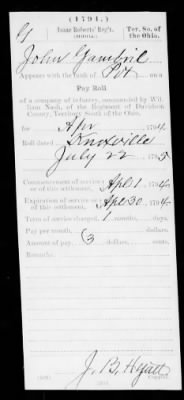 (1794.)
G | Isaac Roberts' Reg't. | Ter. So. of the Ohio.
John Gambril
Appears with the rank of Pvt. on a
Pay Roll
of a company of infantry, commanded by William Nash, of the Regiment of Davidson County, Territory South of the Ohio,
for Apr, 1794.
Roll dated Knoxville
July 22, 1795
Commencement of service or of this settlement, Apl. 1, 1794
Expiration of service or of this settlement, Apl. 30, 1794
Term of service charged, 1 months, days.
Pay per month, (3 dollars, cents.
Amount of pay, dollars, cents.
Remarks:
J. B. Hyatt
Copyist.